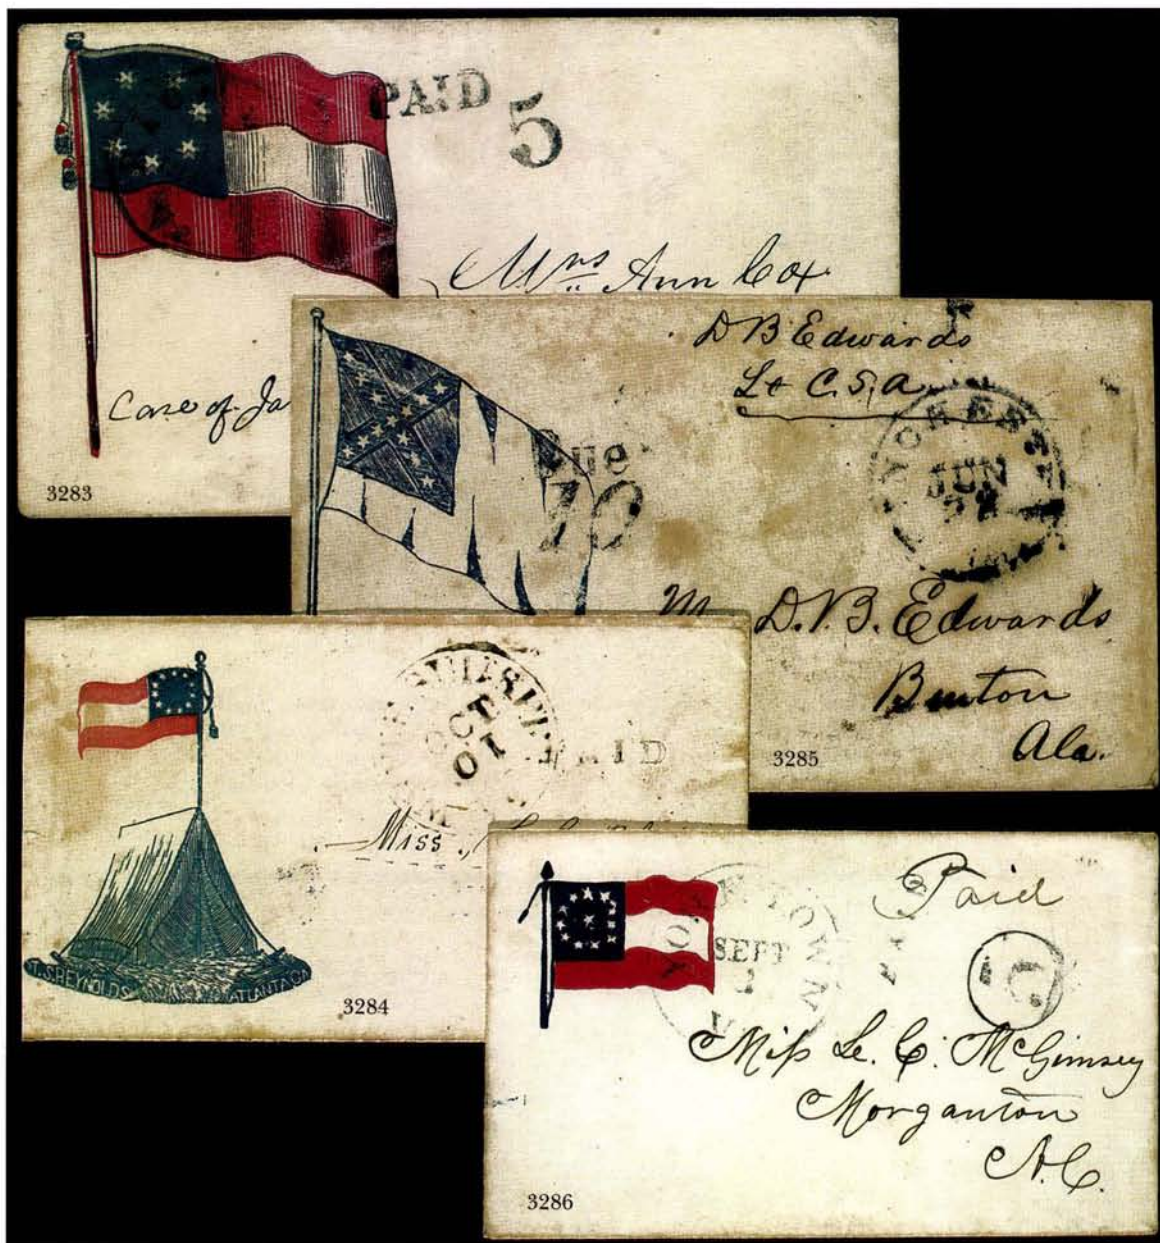 PAID
5
Mrs Ann Cox
Care of Ja
3283
D B Edwards
Lt C.S.A
Due
10
JUN
D.B. Edwards
Burton
Ala.
3285
OCT
01
PAID
Miss
T.S. REYNOLDS ATLANTA GA
3284
Paid
YORKTOWN
SEPT
1
VA
PAID
10
Miss L. C. McGimsey
Morganton
N.C.
3286